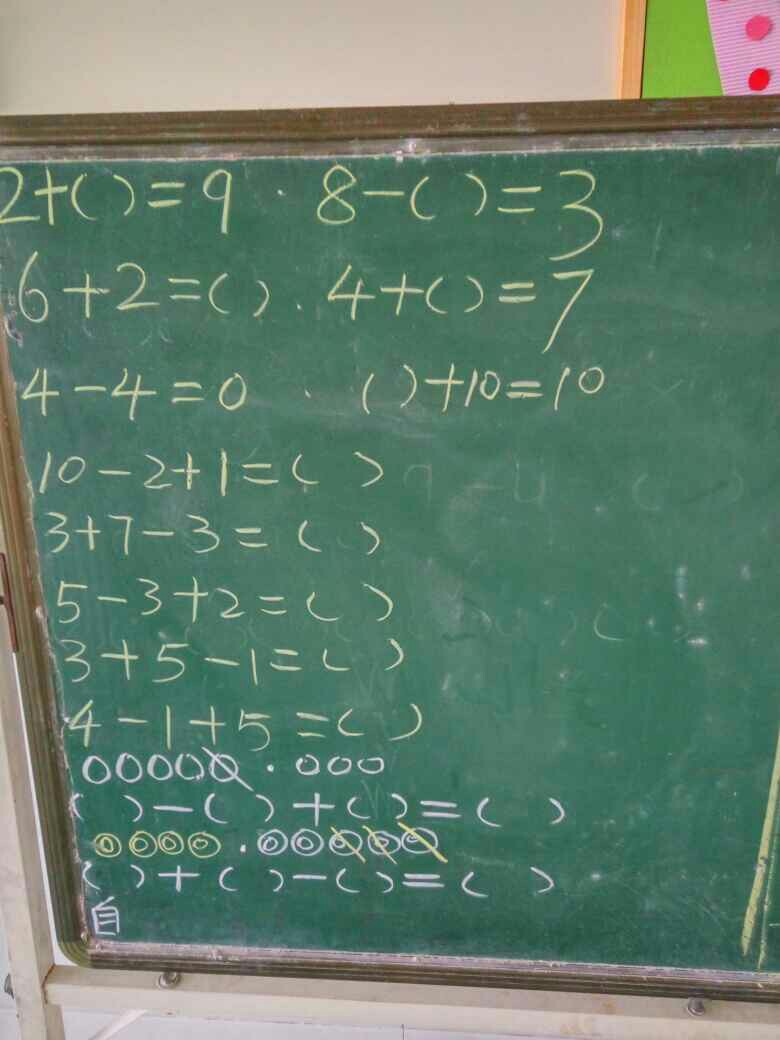 2+( )=9 · 8-( )=3
6+2=( ). 4+( )=7
4-4=0 · ( )+10=10
10-2+1=( )
3+7-3=( )
5-3+2=( )
3+5-1=( )
4-1+5=( )
( )-( )+( )=( )
( )+( )-( )=( )
自